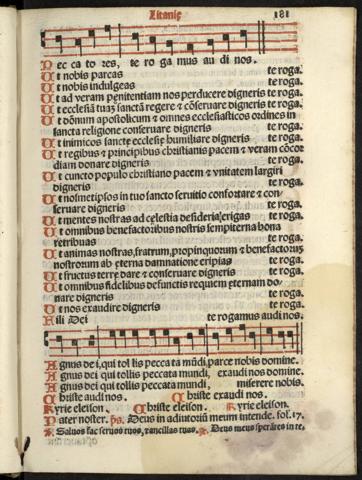 Litanię 181
Pec ca to res, te ro ga mus au di nos.
Ut nobis parcas te roga.
Ut nobis indulgeas te roga.
Ut ad veram pęnitentiam nos perducere digneris te roga.
Ut ecclesiā tuā sanctā regere & cōseruare digneris te roga.
Ut dōnum apostolicum & omnes ecclesiasticos ordines in
sancta religione conseruare digneris te roga.
Ut inimicos sanctę ecclesię humiliare digneris te roga.
Ut regibus & principibus christianis pacem & veram cōcor
diam donare digneris te roga.
Ut cuncto populo christiano pacem & vnitatem largiri
digneris te roga.
Ut nosmetipsos in tuo sancto seruitio confortare & con
seruare digneris te roga.
Ut mentes nostras ad cęlestia desideria erigas te roga.
Ut omnibus benefactoribus nostris sempiterna bona
retribuas te roga.
Ut animas nostras, fratrum, propinquorum & benefactorum
nostrorum ab eterna damnatione eripias te roga.
Ut fructus terrę dare & conseruare digneris te roga.
Ut omnibus fidelibus defunctis requiem eternam do
nare digneris te roga.
Ut nos exaudire digneris te roga.
Fili Dei te rogamus audi nos.
Agnus dei, qui tol lis pecca ta mūdi, parce nobis domine.
Agnus dei qui tollis peccata mundi, exaudi nos domine.
Agnus dei qui tollis peccata mundi, miserere nobis.
Christe audi nos. Christe exaudi nos.
Kyrie eleison. Christe eleison. Kyrie eleison.
Pater noster. ps. Deus in adiutoriū meum intende. fol. 17.
Saluos fac seruos tuos, & ancillas tuas. Deus meus sperātes in te.